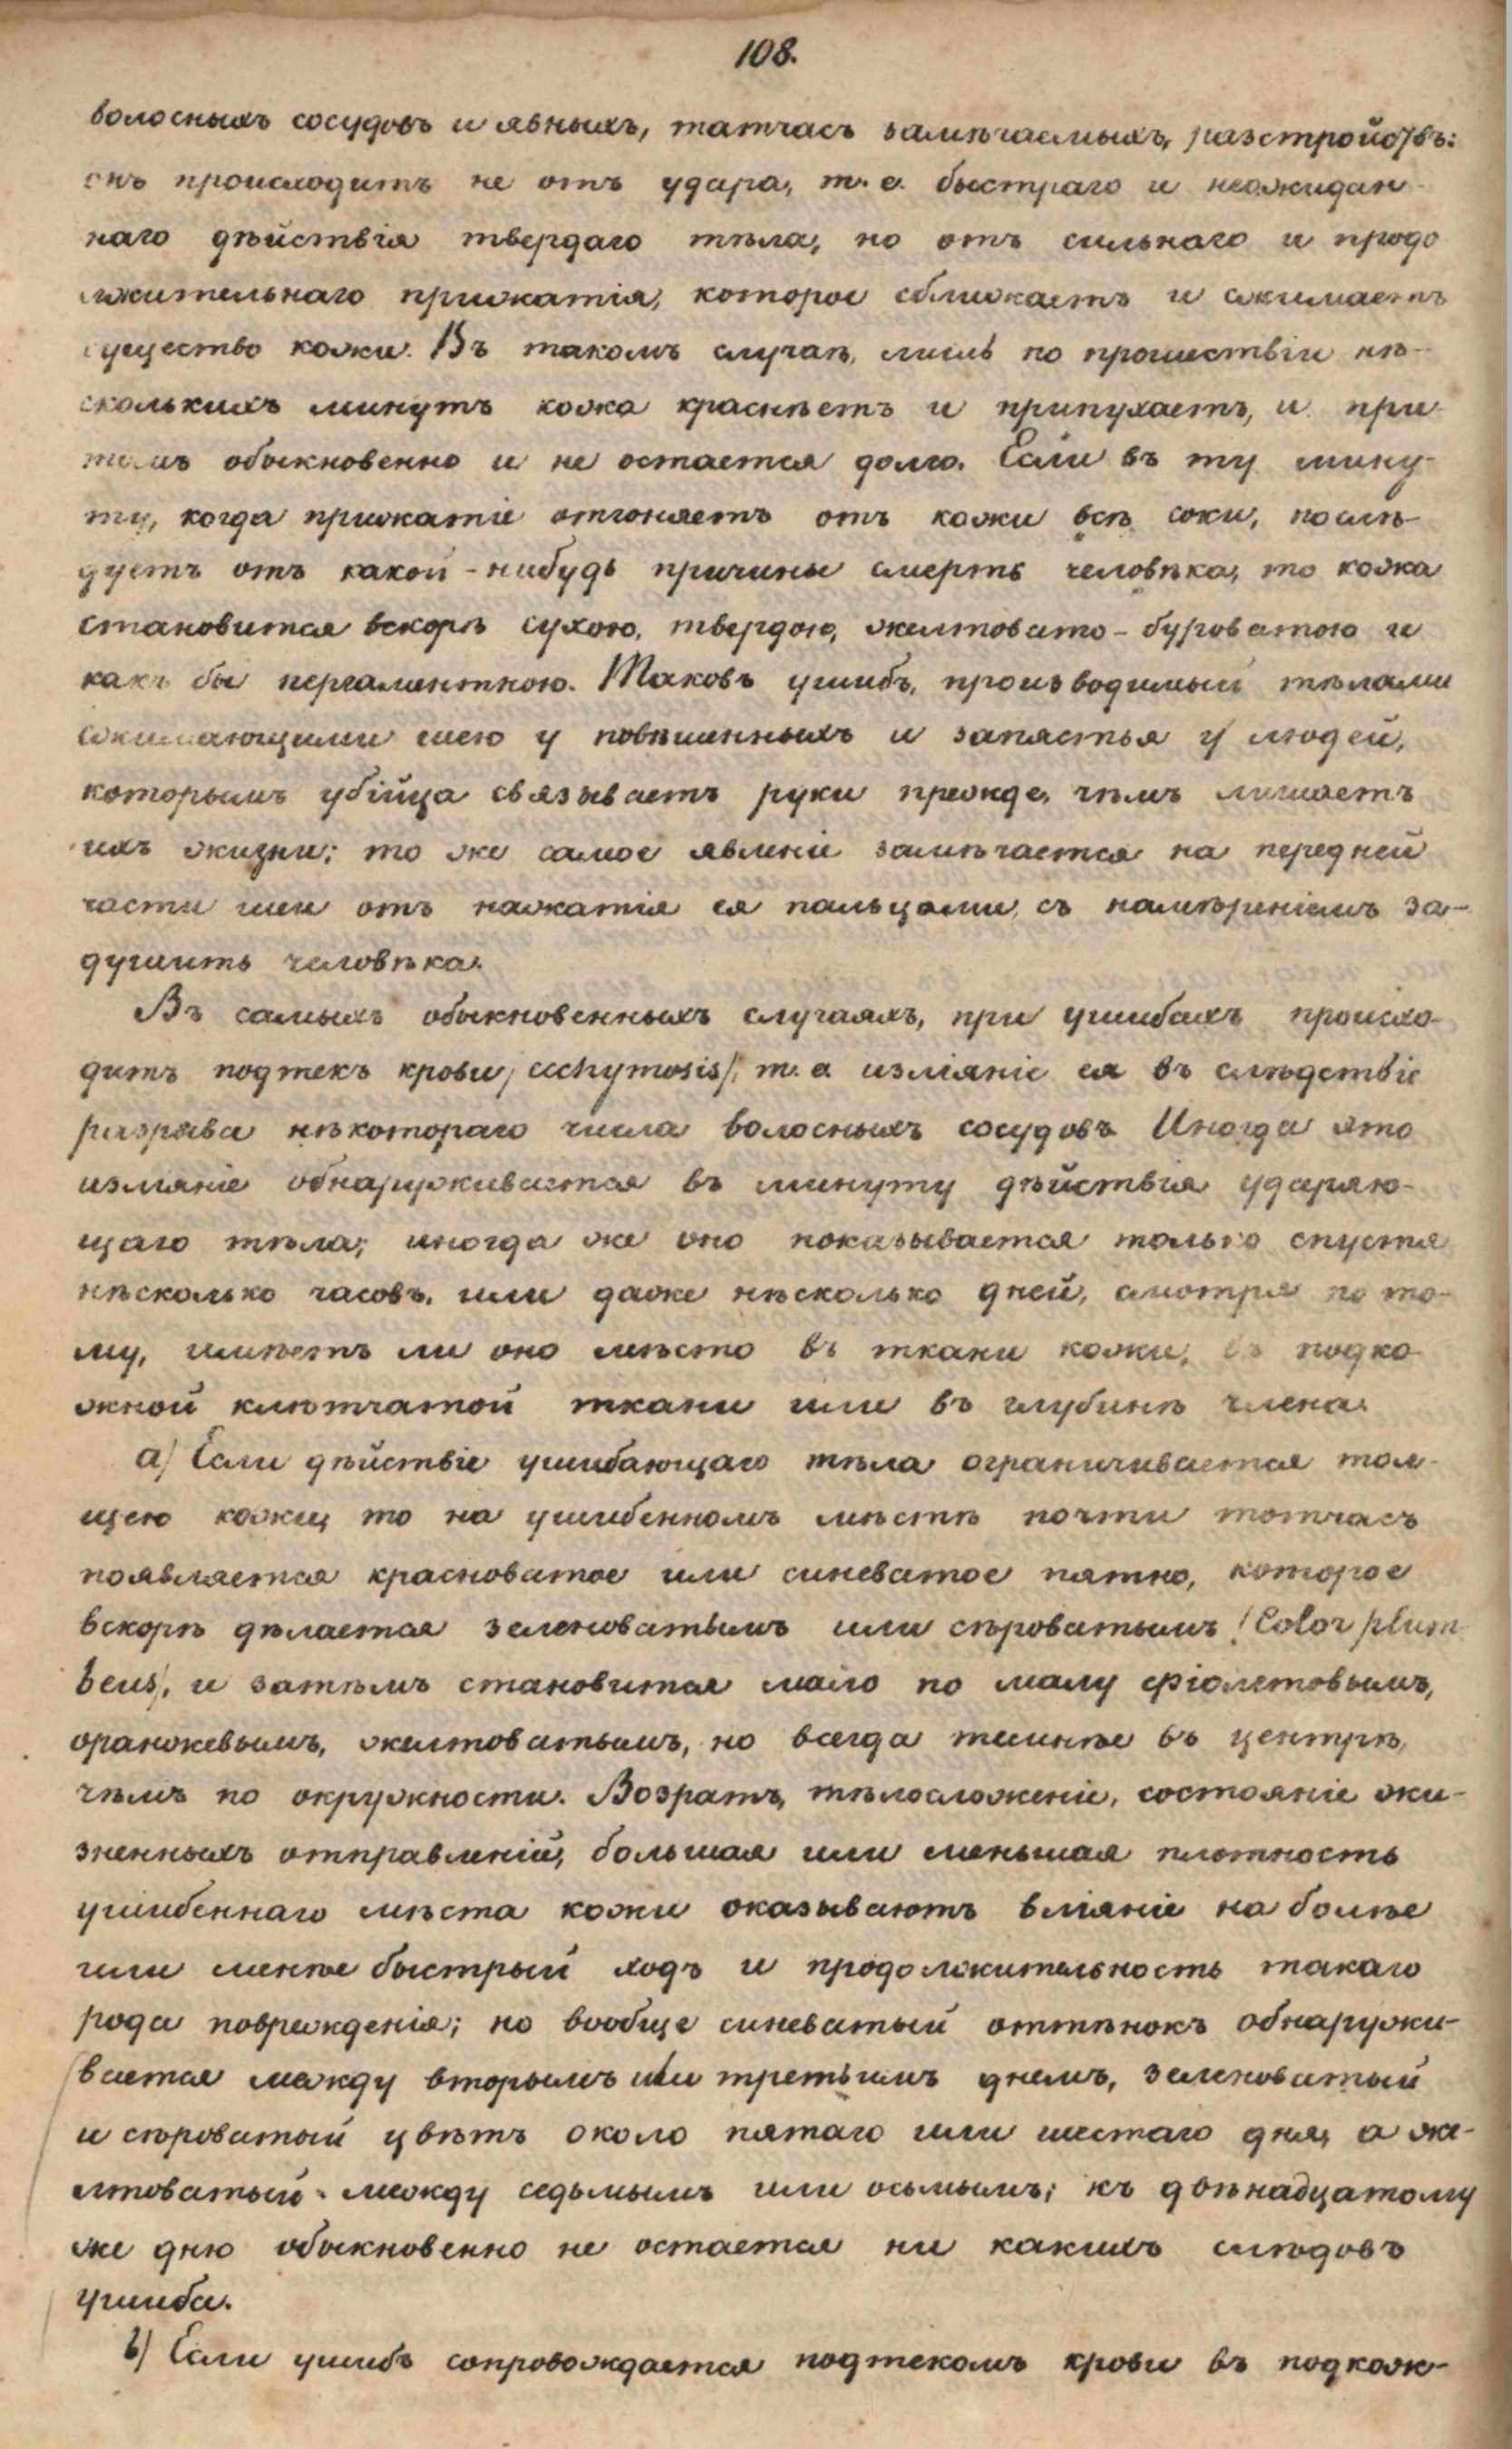 108.
волосныхъ сосудовъ и явныхъ, татчасъ замѣчаемыхъ, разстройствъ:
онъ происходитъ не отъ удара, т. е. быстраго и неожидан-
наго дѣйствія твердаго тѣла, но отъ сильнаго и продо
лжительнаго прижатія, которое сближаетъ и сжимаетъ
существо кожи. Въ такомъ случаѣ, лишь по прошествіи нѣ-
сколькихъ минутъ кожа краснѣетъ и припухаетъ, и при
томъ обыкновенно и не остается долго. Если въ ту мину-
ту, когда прижатіе отгоняетъ отъ кожи всѣ соки, послѣ-
дуетъ отъ какой-нибудь причины смерть человѣка, то кожа
становится вскорѣ сухою, твердою, желтовато-буроватою и
какъ бы пергаментною. Таковъ ушибъ, производимый тѣлами
сжимающими шею у повѣшенныхъ и запястья у людей,
которымъ убійца связываетъ руки прежде, чѣмъ лишаетъ
ихъ жизни; то же самое явленіе замѣчается на передней
части шеи отъ нажатія ея пальцами, съ намѣреніемъ за-
душить человѣка.
Въ самыхъ обыкновенныхъ случаяхъ, при ушибахъ происхо-
дитъ подтекъ крови /ecchymosis/, т. е. изліяніе ея въ слѣдствіе
разрыва нѣкотораго числа волосныхъ сосудовъ. Иногда это
изліяніе обнаруживается въ минуту дѣйствія ударяю-
щаго тѣла; иногда же оно показывается только спустя
нѣсколько часовъ, или даже нѣсколько дней, смотря по то-
му, имѣетъ ли оно мѣсто въ ткани кожи, въ подко-
жной клѣтчатой ткани или въ глубинѣ члена.
а) Если дѣйствіе ушибающаго тѣла ограничивается тол-
щею кожи, то на ушибенномъ мѣстѣ почти тотчасъ
появляется красноватое или синеватое пятно, которое
вскорѣ дѣлается зеленоватымъ или сѣроватымъ /Color plum-
beus/, и затѣмъ становится мало по малу фіолетовымъ,
оранжевымъ, желтоватымъ, но всегда темнѣе въ центрѣ,
чѣмъ по окружности. Возратъ, тѣлосложеніе, состояніе жи-
зненныхъ отправленій, большая или меньшая плотность
ушибеннаго мѣста кожи оказываютъ вліяніе на болѣе
или менѣе быстрый ходъ и продолжительность такаго
рода поврежденія; но вообще синеватый оттѣнокъ обнаружи-
вается между вторымъ или третьимъ днемъ, зеленоватый
и сѣроватый цвѣтъ около пятаго или шестаго дня, а же-
лтоватый - между седьмымъ или осьмымъ; къ двѣнадцатому
же дню обыкновенно не остается ни какихъ слѣдовъ
ушиба.
b) Если ушибъ сопровождается подтекомъ крови въ подкож-